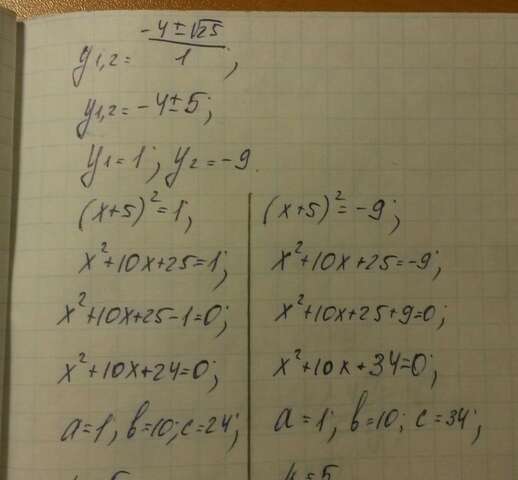 y1,2 = (-4 ± √25)/1;
y1,2 = -4 ± 5;
y1 = 1; y2 = -9.
(x+5)² = 1;
x² + 10x + 25 = 1;
x² + 10x + 25 - 1 = 0;
x² + 10x + 24 = 0;
a = 1; b = 10; c = 24;
(x+5)² = -9;
x² + 10x + 25 = -9;
x² + 10x + 25 + 9 = 0;
x² + 10x + 34 = 0;
a = 1; b = 10; c = 34;